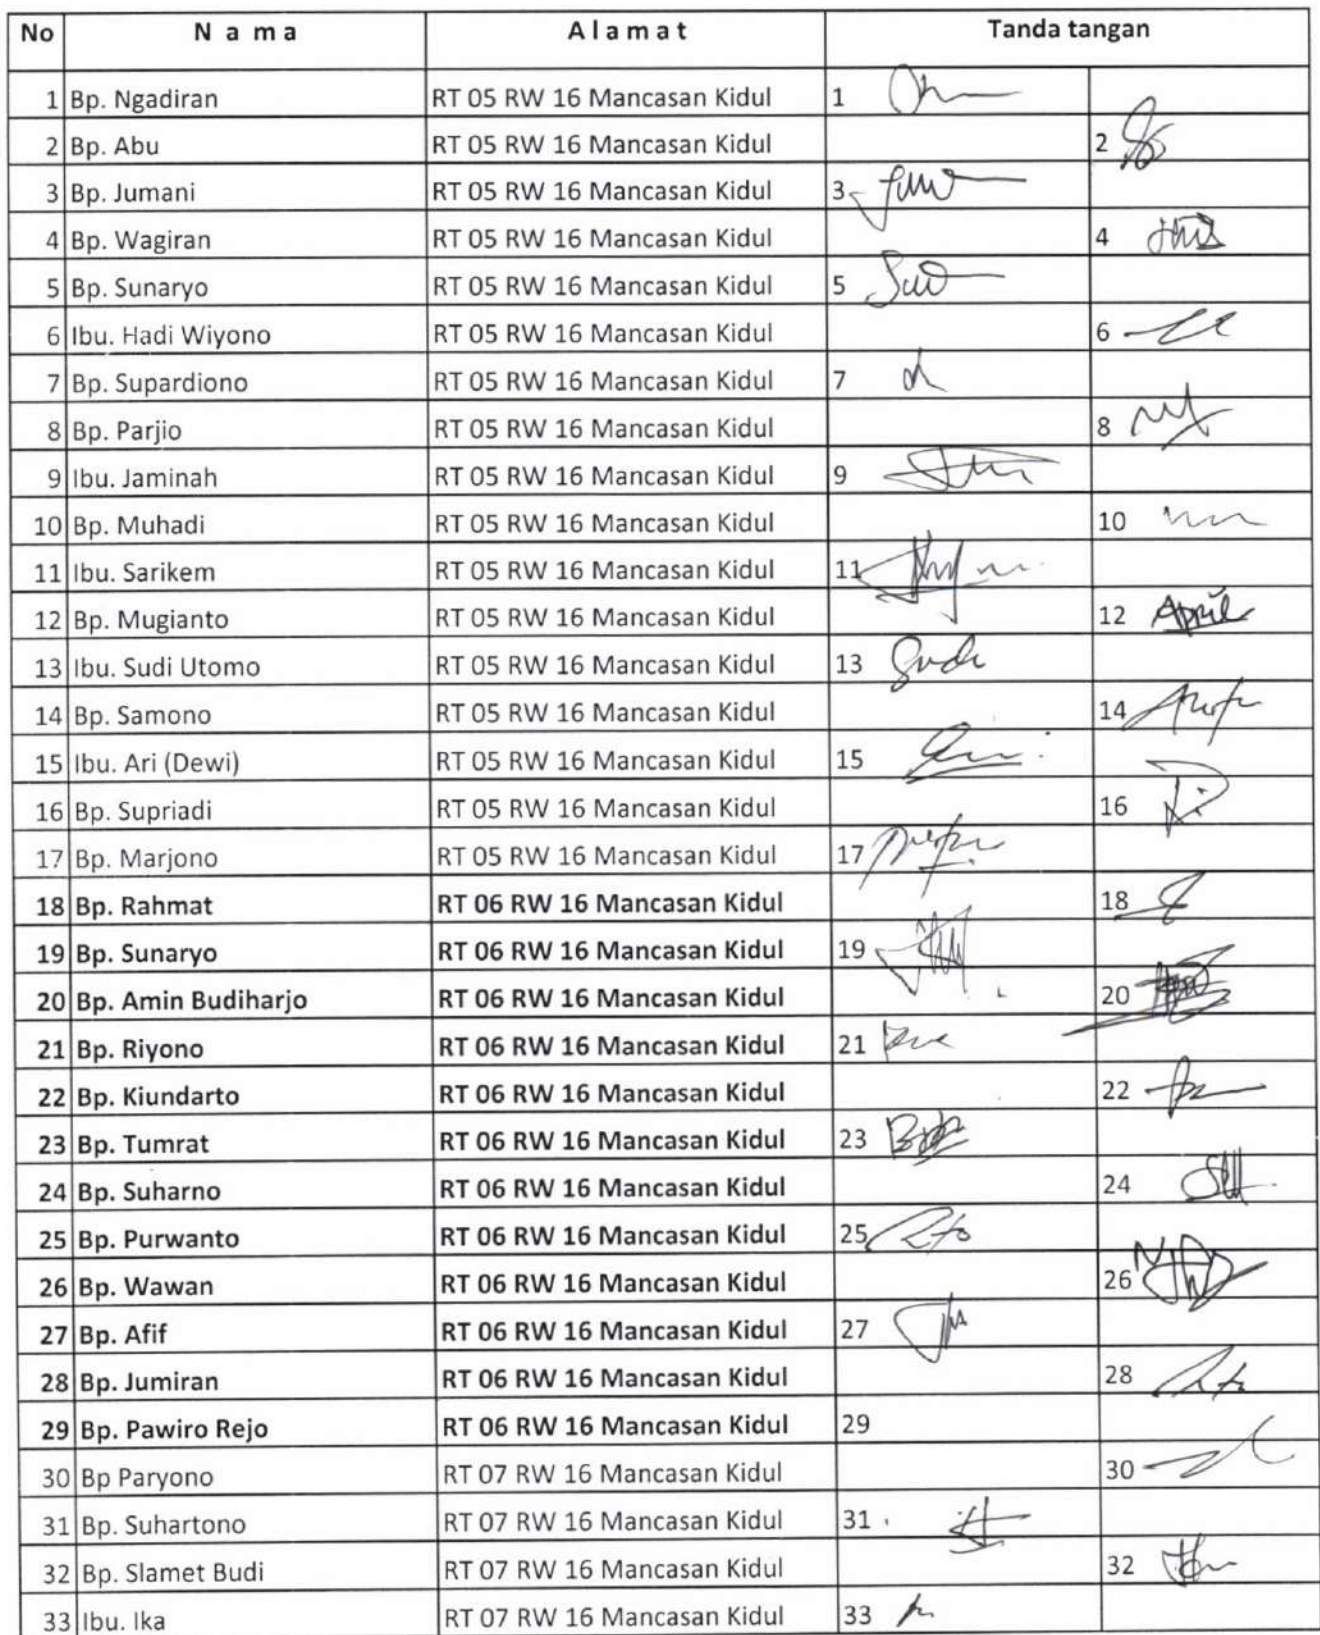 No N a m a A l a m a t Tanda tangan
1 Bp. Ngadiran RT 05 RW 16 Mancasan Kidul 1
2 Bp. Abu RT 05 RW 16 Mancasan Kidul 2
3 Bp. Jumani RT 05 RW 16 Mancasan Kidul 3
4 Bp. Wagiran RT 05 RW 16 Mancasan Kidul 4
5 Bp. Sunaryo RT 05 RW 16 Mancasan Kidul 5
6 Ibu. Hadi Wiyono RT 05 RW 16 Mancasan Kidul 6
7 Bp. Supardiono RT 05 RW 16 Mancasan Kidul 7
8 Bp. Parjio RT 05 RW 16 Mancasan Kidul 8
9 Ibu. Jaminah RT 05 RW 16 Mancasan Kidul 9
10 Bp. Muhadi RT 05 RW 16 Mancasan Kidul 10
11 Ibu. Sarikem RT 05 RW 16 Mancasan Kidul 11
12 Bp. Mugianto RT 05 RW 16 Mancasan Kidul 12 April
13 Ibu. Sudi Utomo RT 05 RW 16 Mancasan Kidul 13 Sudi
14 Bp. Samono RT 05 RW 16 Mancasan Kidul 14
15 Ibu. Ari (Dewi) RT 05 RW 16 Mancasan Kidul 15
16 Bp. Supriadi RT 05 RW 16 Mancasan Kidul 16
17 Bp. Marjono RT 05 RW 16 Mancasan Kidul 17
18 Bp. Rahmat RT 06 RW 16 Mancasan Kidul 18
19 Bp. Sunaryo RT 06 RW 16 Mancasan Kidul 19
20 Bp. Amin Budiharjo RT 06 RW 16 Mancasan Kidul 20
21 Bp. Riyono RT 06 RW 16 Mancasan Kidul 21
22 Bp. Kiundarto RT 06 RW 16 Mancasan Kidul 22
23 Bp. Tumrat RT 06 RW 16 Mancasan Kidul 23
24 Bp. Suharno RT 06 RW 16 Mancasan Kidul 24
25 Bp. Purwanto RT 06 RW 16 Mancasan Kidul 25
26 Bp. Wawan RT 06 RW 16 Mancasan Kidul 26
27 Bp. Afif RT 06 RW 16 Mancasan Kidul 27
28 Bp. Jumiran RT 06 RW 16 Mancasan Kidul 28
29 Bp. Pawiro Rejo RT 06 RW 16 Mancasan Kidul 29
30 Bp Paryono RT 07 RW 16 Mancasan Kidul 30
31 Bp. Suhartono RT 07 RW 16 Mancasan Kidul 31
32 Bp. Slamet Budi RT 07 RW 16 Mancasan Kidul 32
33 Ibu. Ika RT 07 RW 16 Mancasan Kidul 33